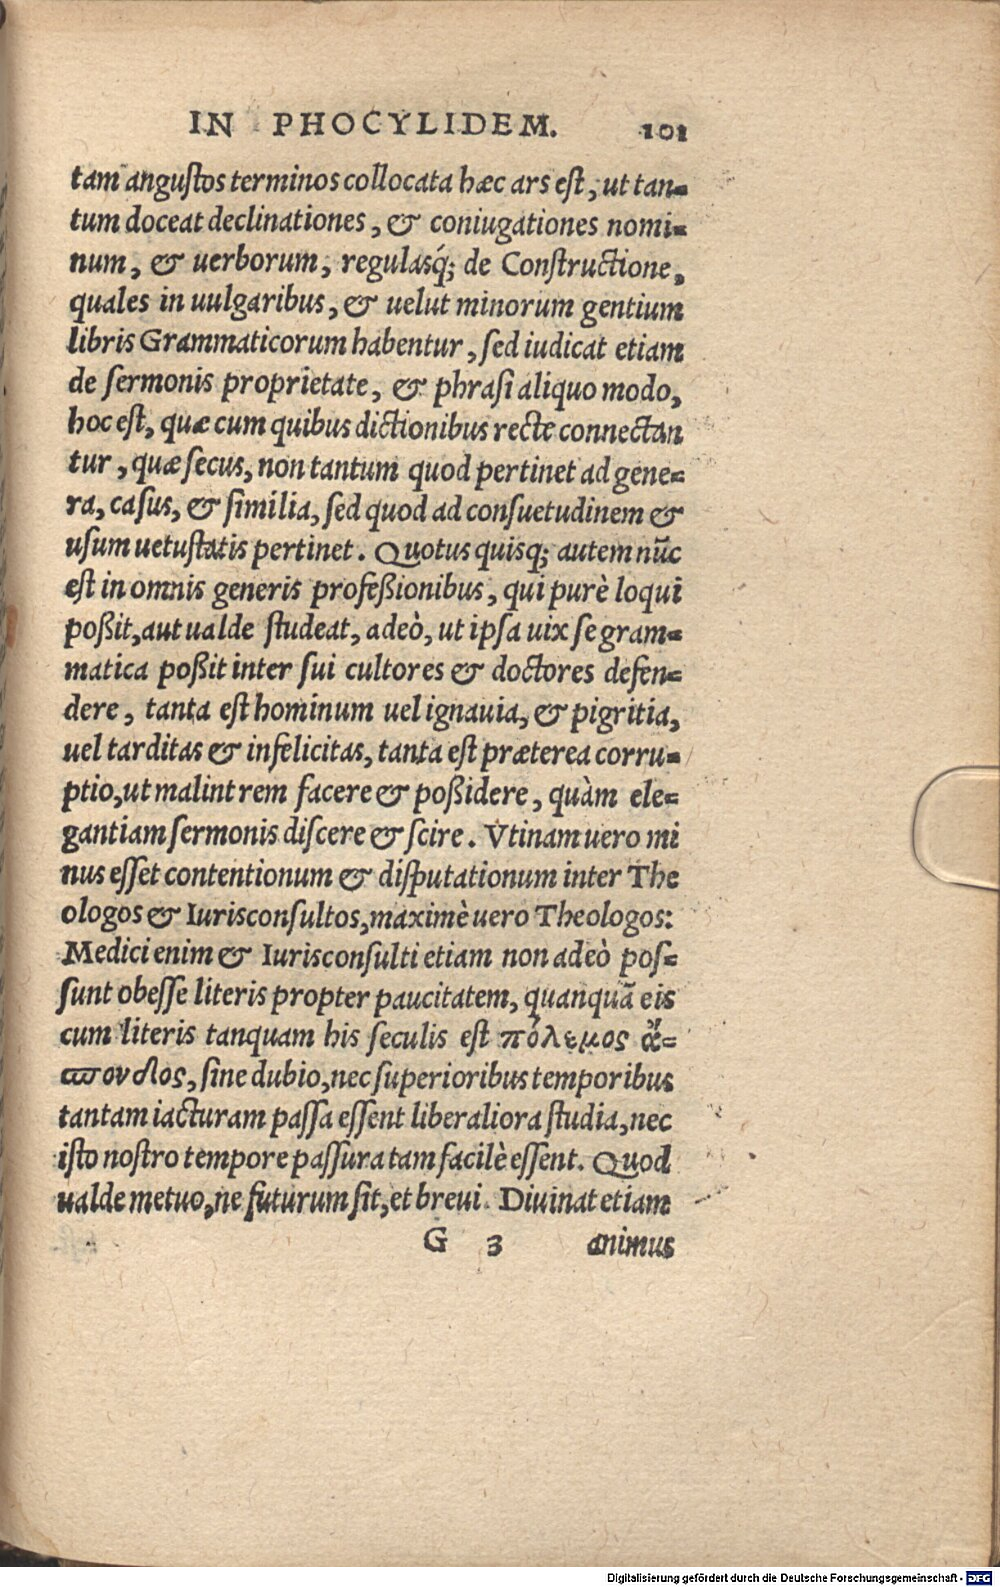 IN PHOCYLIDEM. 101
tam anguſtos terminos collocata hæc ars eſt, ut tan-
tum doceat declinationes, & coniugationes nomi-
num, & uerborum, regulasq́; de Conſtructione,
quales in uulgaribus, & uelut minorum gentium
libris Grammaticorum habentur, ſed iudicat etiam
de ſermonis proprietate, & phraſi aliquo modo,
hoc eſt, quæ cum quibus dictionibus recte connectan
tur, quæ ſecus, non tantum quod pertinet ad gene-
ra, caſus, & ſimilia, ſed quod ad conſuetudinem &
uſum uetuſtatis pertinet. Quotus quisq; autem nūc
eſt in omnis generis profeßionibus, qui purè loqui
poßit, aut ualde ſtudeat, adeò, ut ipſa uix ſe gram-
matica poßit inter ſui cultores & doctores defen-
dere, tanta eſt hominum uel ignauia, & pigritia,
uel tarditas & infelicitas, tanta eſt præterea corru-
ptio, ut malint rem facere & poßidere, quàm ele-
gantiam ſermonis diſcere & ſcire. Vtinam uero mi
nus eſſet contentionum & diſputationum inter The
ologos & Iurisconſultos, maximè uero Theologos:
Medici enim & Iurisconſulti etiam non adeò poſ-
ſunt obeſſe literis propter paucitatem, quanquā eis
cum literis tanquam his ſeculis eſt πόλεμος ἄ-
ϖονδος, ſine dubio, nec ſuperioribus temporibus
tantam iacturam paſſa eſſent liberaliora ſtudia, nec
iſto noſtro tempore paſſura tam facilè eſſent. Quod
ualde metuo, ne futurum ſit, et breui. Diuinat etiam
G 3 animus
Digitalisierung gefördert durch die Deutsche Forschungsgemeinschaft - DFG